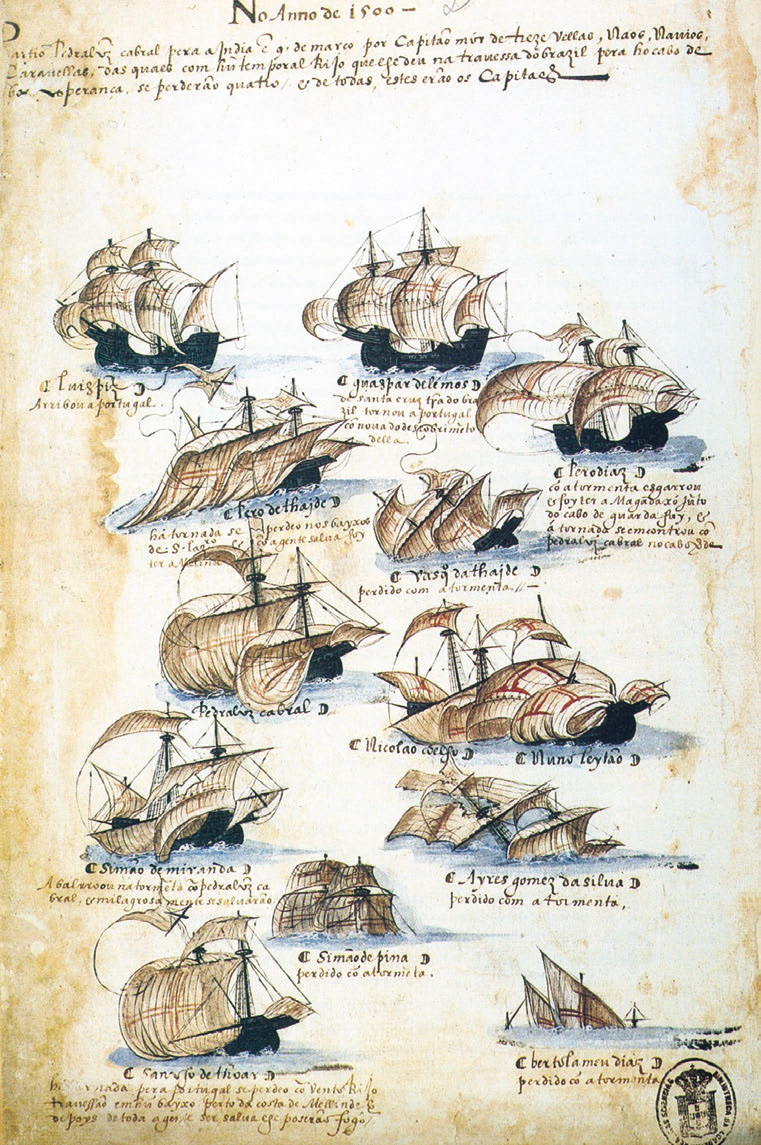 No Anno de 1500 —
Partio Pedralvz cabral pera a India ẽ 9. de março por Capitão mór de treze vellas, Naos, Navios,
Caravellas, das quaes com hũ temporal Rijo que lhe deu na travessa do brazil pera ho cabo de
boa esperança, se perderão quatro, e de todas, estes erão os Capitaẽs
Luis piz
Arribou a portugal.
guaspar de lemos
de santa cruz tra do bra
zil tornou a portugal
cõ nova do descobrimẽto
della.
Pero diaz
cõ a tormenta esgarrou
e foy ter a Magadaxó jũto
do cabo de guarda fuy, e
á tornada se emcontrou cõ
pedralvz cabral no cabo
Pero de thaide
há tornada se perdeo nos bayxos
de S. Lazº cõ a gente salva foy
ter a Melinde
vasqº da thaide
perdido com a tormenta.
Pedralvz cabral
Nicolao coelho
Nuno leytão
Simão de miranda
Abalrroou na tormẽta cõ pedralvz ca
bral, e milagrosamente se salvarão
Ayres gomez da silva
perdido com a tormenta.
Simão de pina
perdido cõ a tormẽta.
Sancho de thoar
há tornada pera Portugal se perdeo cõ vento Rijo
travessão em hũ bayxo perto da costa de Mellinde
depoys de toda a gente ser salva lhe poserão fogo
bertolameu diaz
perdido cõ a tormenta